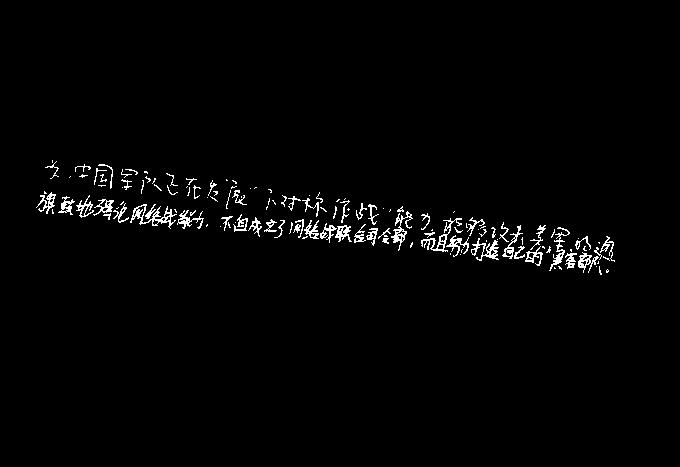 为,中国军队正在发展“不对称作战”能力,能够攻击美军的通
旗鼓地强化网络战能力,不但成立了网络战联合司令部,而且努力打造自己的“黑客部队”。